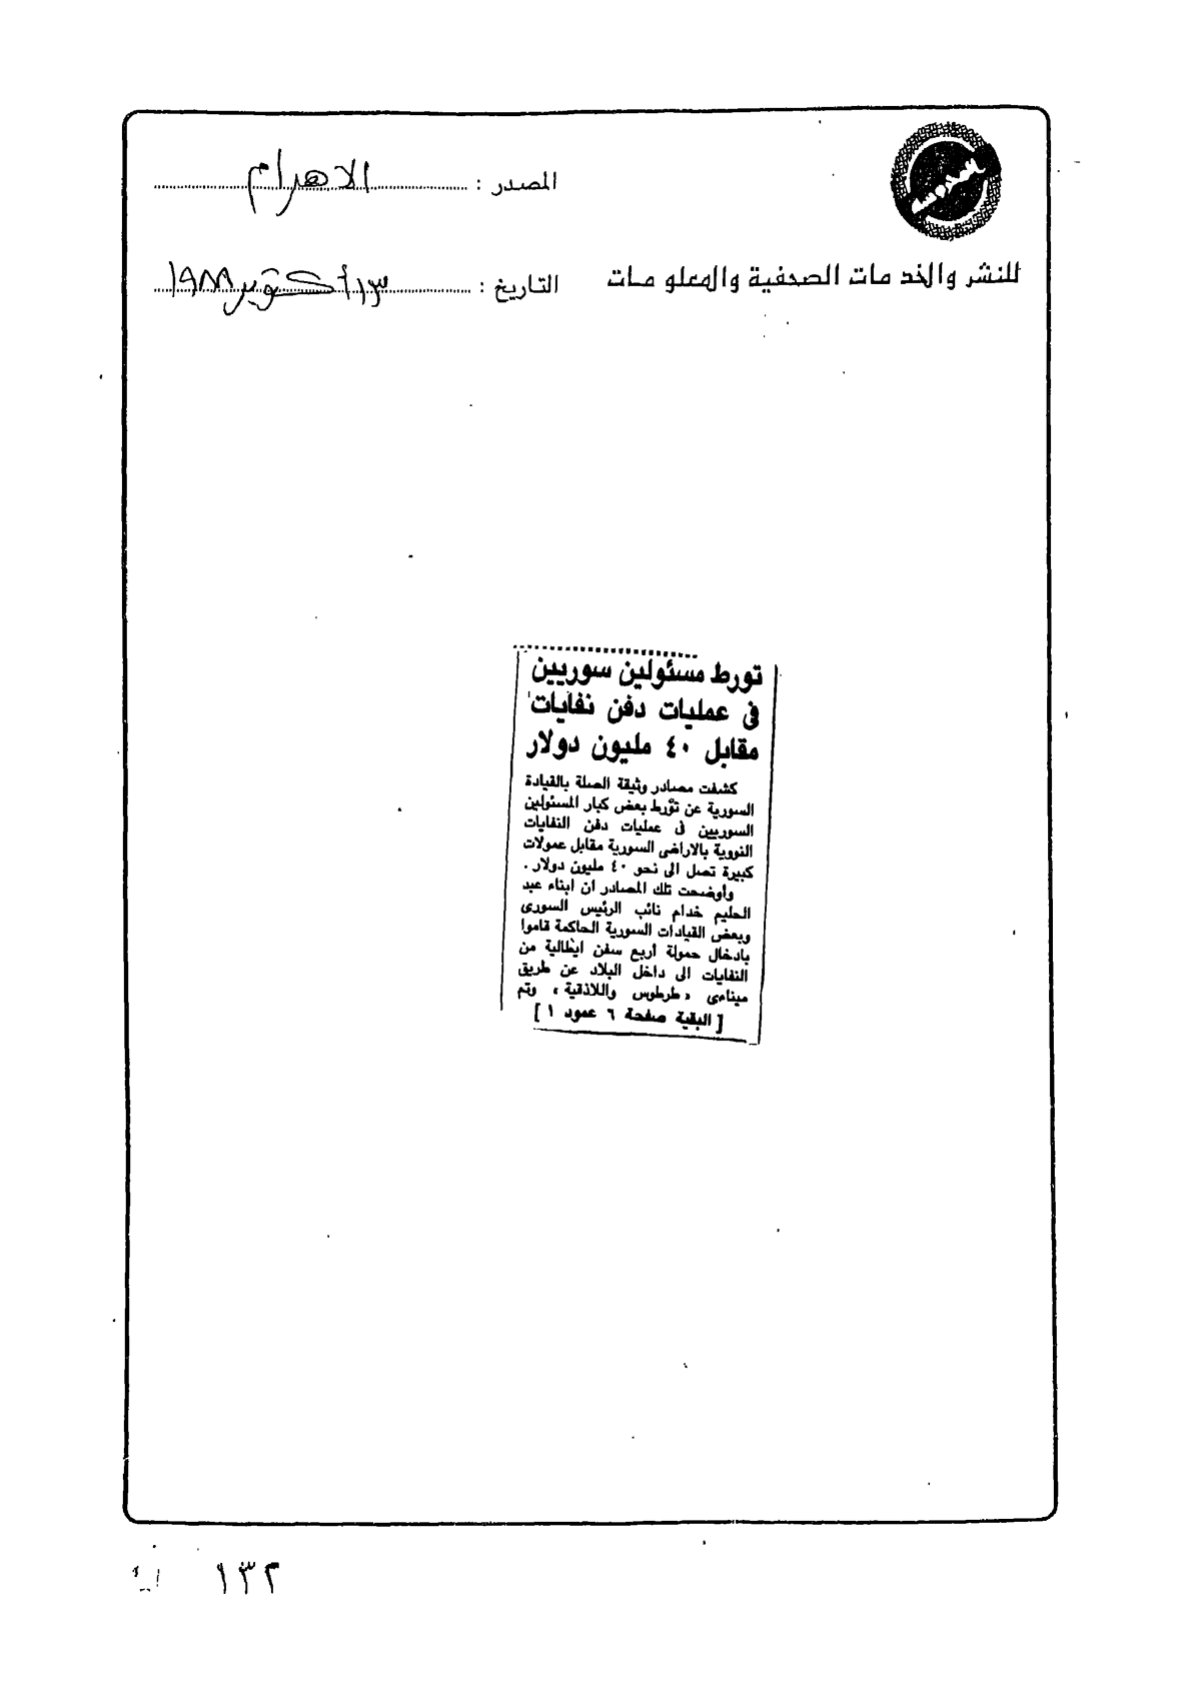 المصدر : الاهرام
للنشر والخدمات الصحفية والمعلومات
التاريخ : ١٣ أكتوبر ١٩٨٨
تورط مسئولين سوريين
فى عمليات دفن نفايات
مقابل ٤٠ مليون دولار
كشفت مصادر وثيقة الصلة بالقيادة
السورية عن تورط بعض كبار المسئولين
السوريين فى عمليات دفن النفايات
النووية بالاراضى السورية مقابل عمولات
كبيرة تصل الى نحو ٤٠ مليون دولار .
وأوضحت تلك المصادر ان ابناء عبد
الحليم خدام نائب الرئيس السورى
وبعض القيادات السورية الحاكمة قاموا
بادخال حمولة أربع سفن ايطالية من
النفايات الى داخل البلاد عن طريق
ميناءى « طرطوس واللاذقية » وتم
[ البقية صفحة ٦ عمود ١ ]
١٣٢